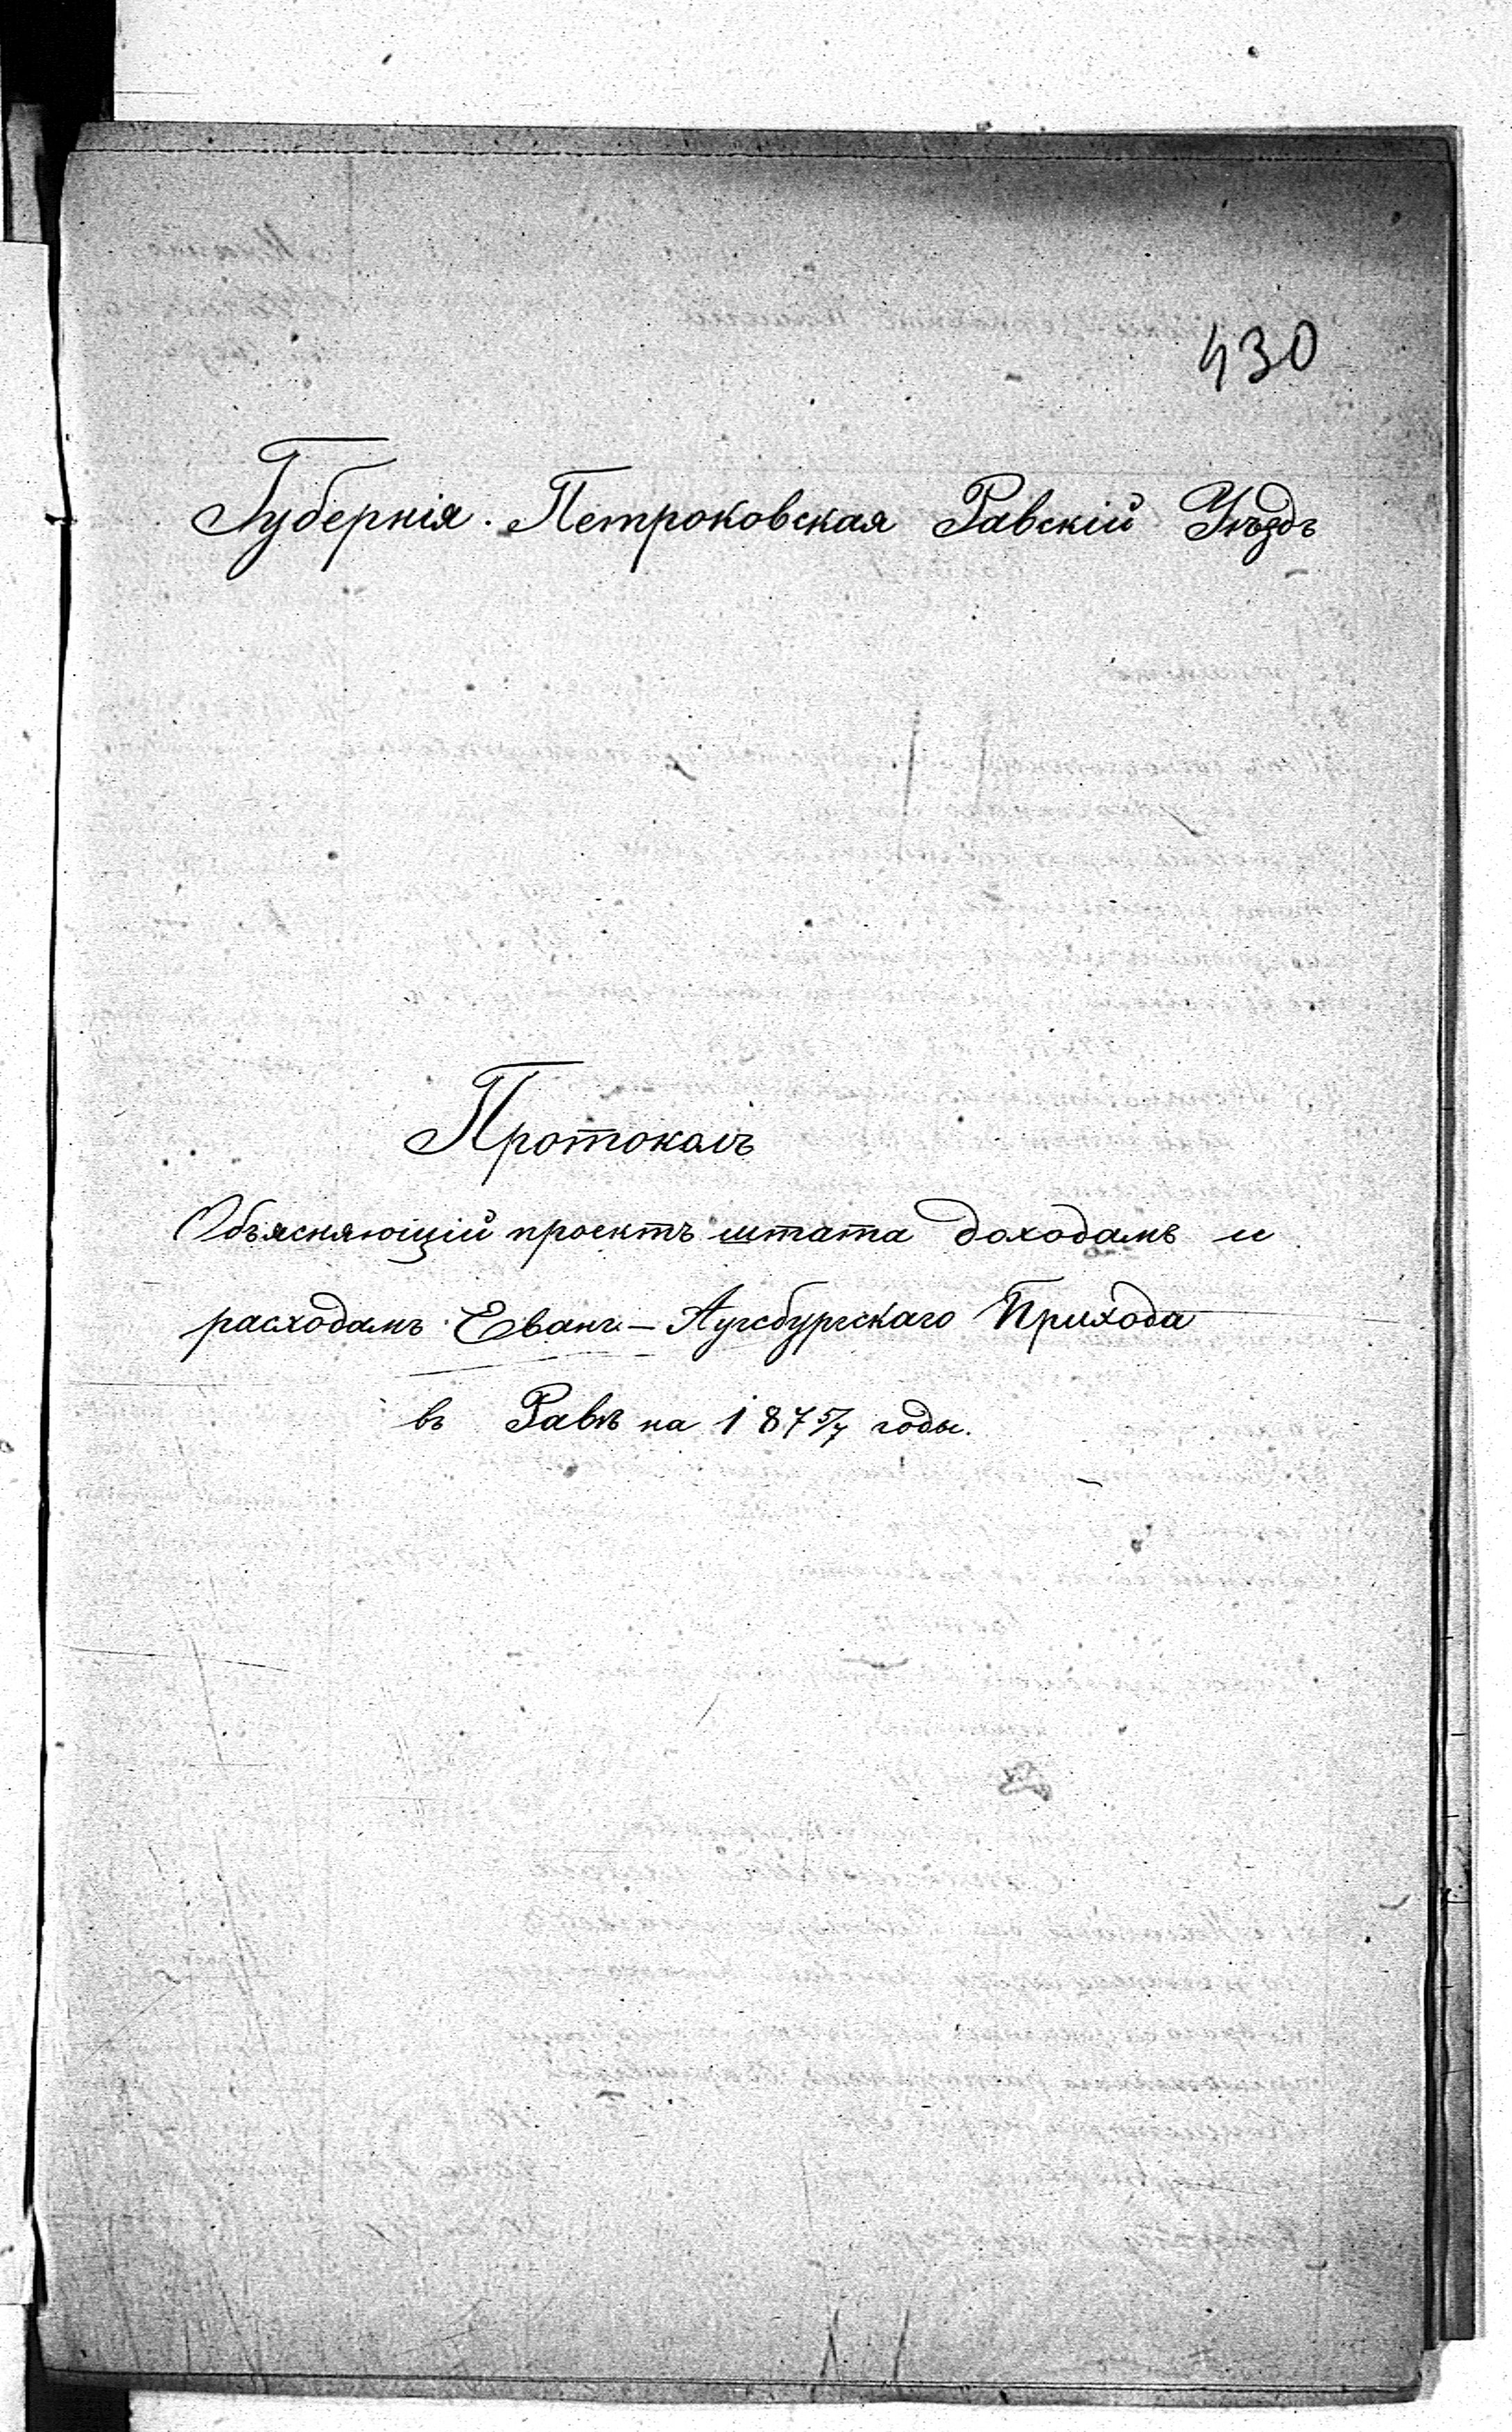 430
Губернія Петроковская Равскій Уѣздъ
Протоколъ
Объясняющій проектъ штата доходамъ и
расходамъ Еванг.- Аугсбургскаго Прихода
въ Равѣ на 187 5/7 годы.